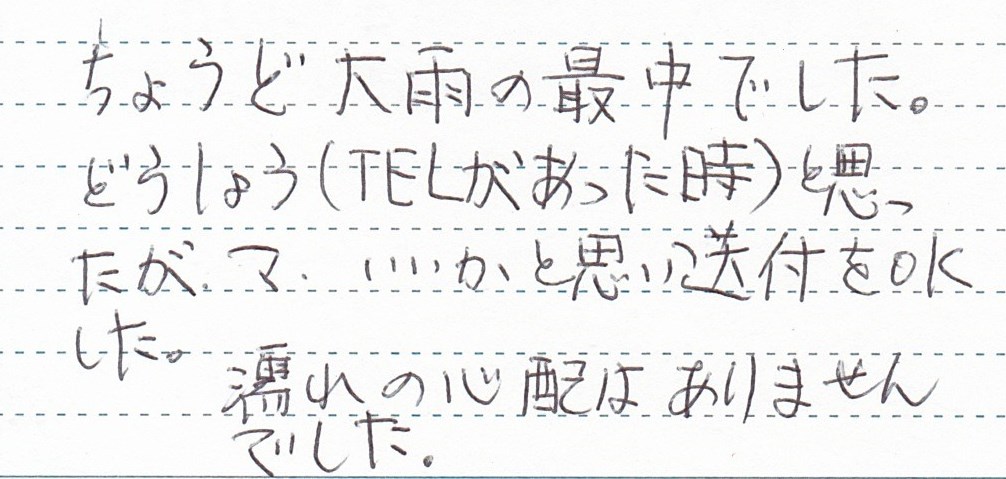 ちょうど大雨の最中でした。
どうしょう(TELがあった時)と思っ
たが、マ、いいかと思い送付をOK
した。
濡れの心配はありません
でした。